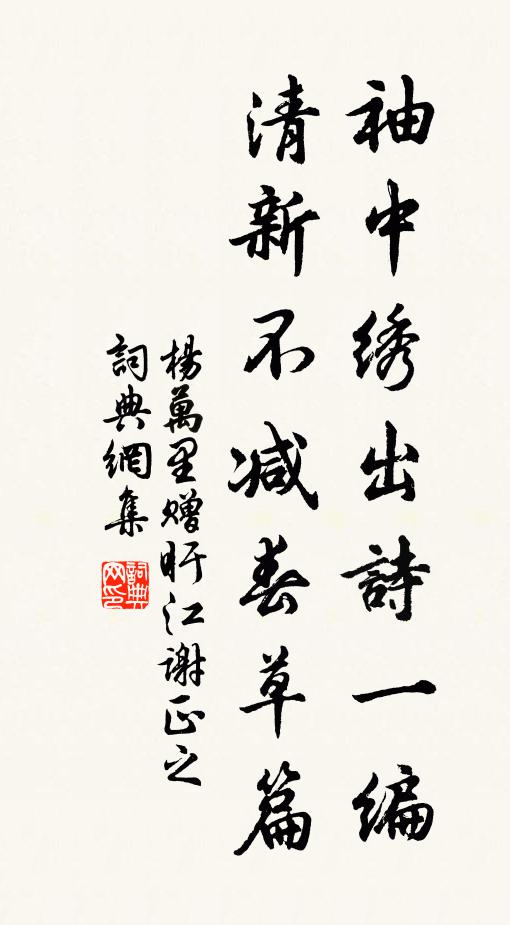 袖中绣出詩一编
清新不减春草篇
楊萬里赠盱江谢正之
詞典網集
詞典网印